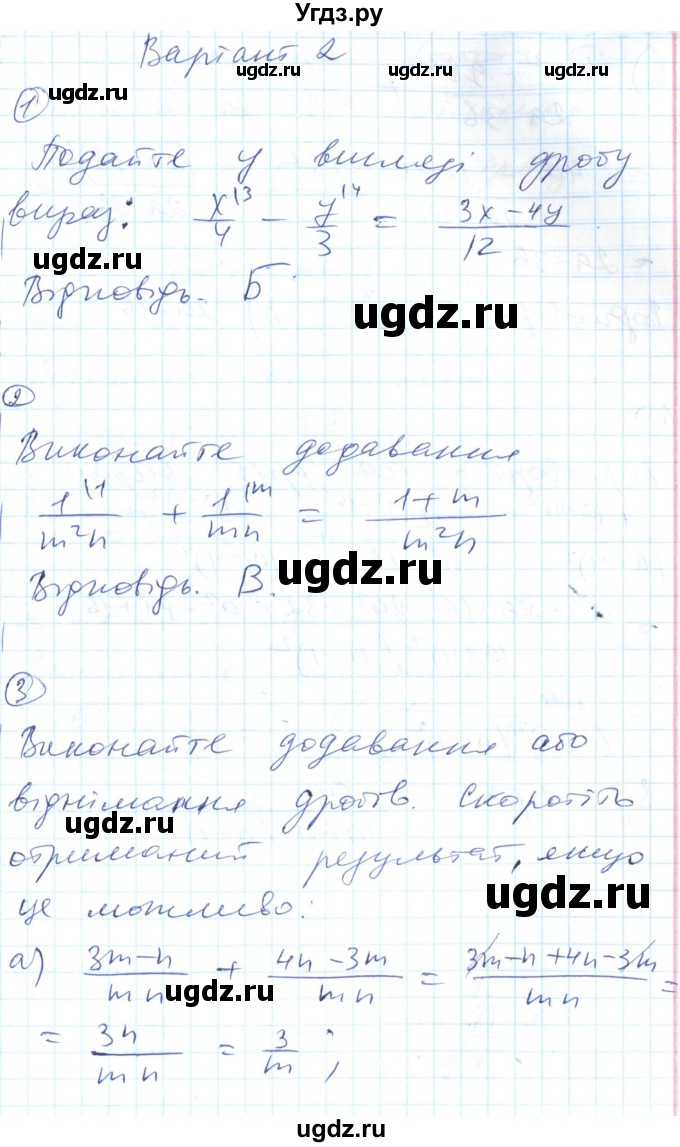 Угдз.ру
Варіант 2
ugdz.ru ugdz.ru ugdz.ru
① ugdz.ru
Подайте у вигляді дробу
вираз: x\3/4 - y\4/3 = 3x-4y/12
ugdz.ru ugdz.ru
Відповідь. Б
ugdz.ru
②
Виконайте додавання
ugdz.ru
1\1/m²n + 1\m/mn = 1+m/m²n
ugdz.ru
Відповідь. В.
③
Виконайте додавання або
віднімання дробів. Скоротіть
ugdz.ru
отриманий результат, якщо
ugdz.ru
це можливо:
а) 3m-n/mn + 4n-3m/mn = 3m-n+4n-3m/mn =
ugdz.ru
= 3n/mn = 3/m ;
ugdz.ru